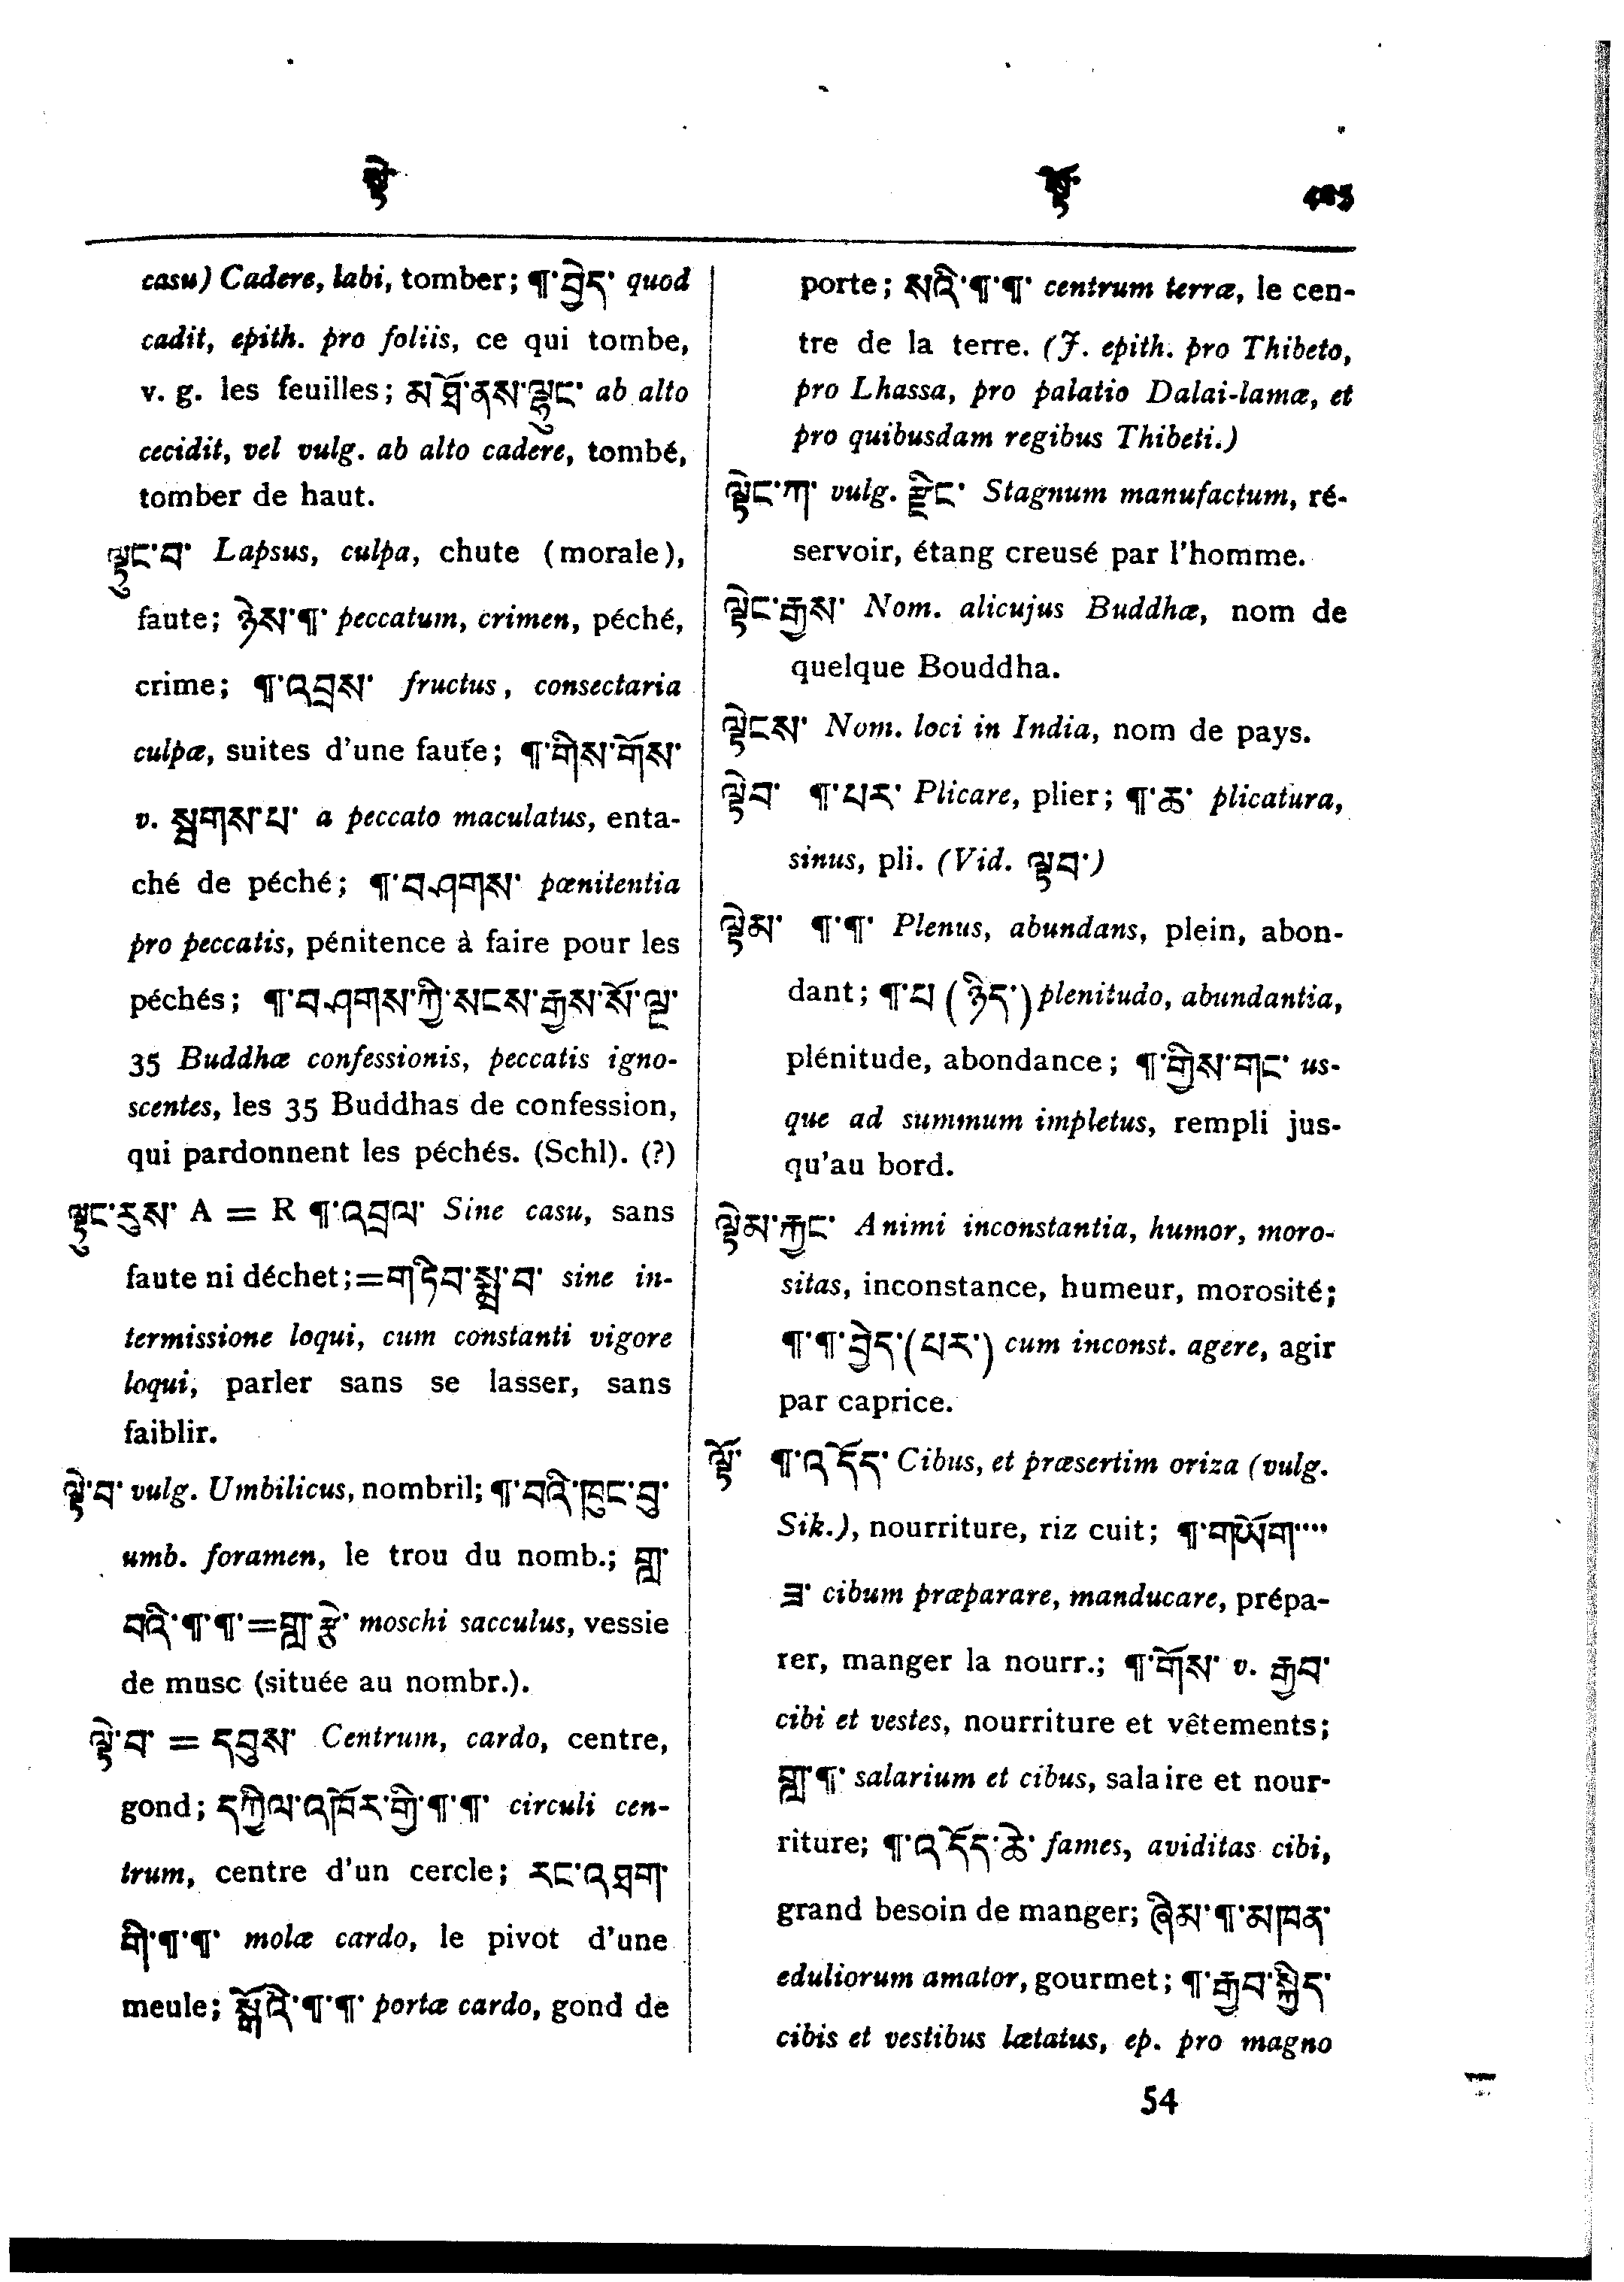 ལྟེ ལྟོ 425
casu) Cadere, labi, tomber; ¶་བྱེད་ quod
cadit, epith. pro foliis, ce qui tombe,
v. g. les feuilles; མཐོ་ནས་ལྷུང་ ab alto
cecidit, vel vulg. ab alto cadere, tombé,
tomber de haut.
ལྟུང་བ་ Lapsus, culpa, chute (morale),
faute; ཉེས་¶་ peccatum, crimen, péché,
crime; ¶་འབྲས་ fructus, consectaria
culpæ, suites d'une faute; ¶་གིས་གོས་
v. སླགས་པ་ a peccato maculatus, enta-
ché de péché; ¶་བཤགས་ pœnitentia
pro peccatis, pénitence à faire pour les
péchés; ¶་བཤགས་ཀྱི་སངས་རྒྱས་སོ་ལྔ་
35 Buddhæ confessionis, peccatis igno-
scentes, les 35 Buddhas de confession,
qui pardonnent les péchés. (Schl). (?)
ལྟུང་རུས་ A = R ¶་འབྲལ་ Sine casu, sans
faute ni déchet;=གཏིབ་སྨྲ་བ་ sine in-
termissione loqui, cum constanti vigore
loqui, parler sans se lasser, sans
faiblir.
ལྟེ་བ་ vulg. Umbilicus, nombril; ¶་བའི་ཁུང་བུ་
umb. foramen, le trou du nomb.; གླ་
བའི་¶་¶་=གླ་རྩེ་ moschi sacculus, vessie
de musc (située au nombr.).
ལྟེ་བ་ = དབུས་ Centrum, cardo, centre,
gond; དཀྱིལ་འཁོར་གྱི་¶་¶་ circuli cen-
trum, centre d'un cercle; རང་འཐག་
གི་¶་¶་ molæ cardo, le pivot d'une
meule; སྒོའི་¶་¶་ portæ cardo, gond de
porte; སའི་¶་¶་ centrum terræ, le cen-
tre de la terre. (J. epith. pro Thibeto,
pro Lhassa, pro palatio Dalai-lamæ, et
pro quibusdam regibus Thibeti.)
ལྟེང་ཀ་ vulg. རྫིང་ Stagnum manufactum, ré-
servoir, étang creusé par l'homme.
ལྟེང་རྒྱས་ Nom. alicujus Buddhæ, nom de
quelque Bouddha.
ལྟེངས་ Nom. loci in India, nom de pays.
ལྟེབ་ ¶་པར་ Plicare, plier; ¶་ཆ་ plicatura,
sinus, pli. (Vid. ལྟབ་)
ལྟེམ་ ¶་¶་ Plenus, abundans, plein, abon-
dant; ¶་པ (ཉིད་) plenitudo, abundantia,
plénitude, abondance; ¶་གྱིས་གང་ us-
que ad summum impletus, rempli jus-
qu'au bord.
ལྟེམ་རྐྱང་ Animi inconstantia, humor, moro-
sitas, inconstance, humeur, morosité;
¶་¶་བྱེད་(པར་) cum inconst. agere, agir
par caprice.
ལྟོ་ ¶་འདོད་ Cibus, et præsertim oriza (vulg.
Sik.), nourriture, riz cuit; ¶་གཡོག་····
ཟ་ cibum præparare, manducare, prépa-
rer, manger la nourr.; ¶་གོས་ v. རྒྱབ་
cibi et vestes, nourriture et vêtements;
གླ་¶་ salarium et cibus, salaire et nour-
riture; ¶་འདོད་ཆེ་ fames, aviditas cibi,
grand besoin de manger; ཞིམ་¶་མཁན་
eduliorum amator, gourmet; ¶་རྒྱབ་སྐྱིད་
cibis et vestibus lætatus, ep. pro magno
54